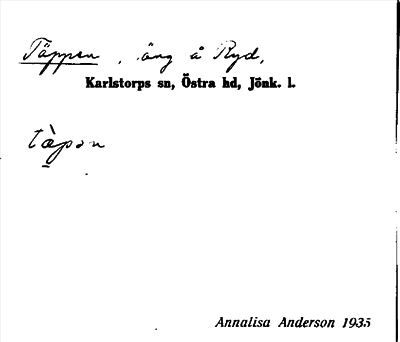 Täppen, äng å Ryd,
Karlstorps sn, Östra hd, Jönk. l.
tä̀pən
Annalisa Anderson 1935